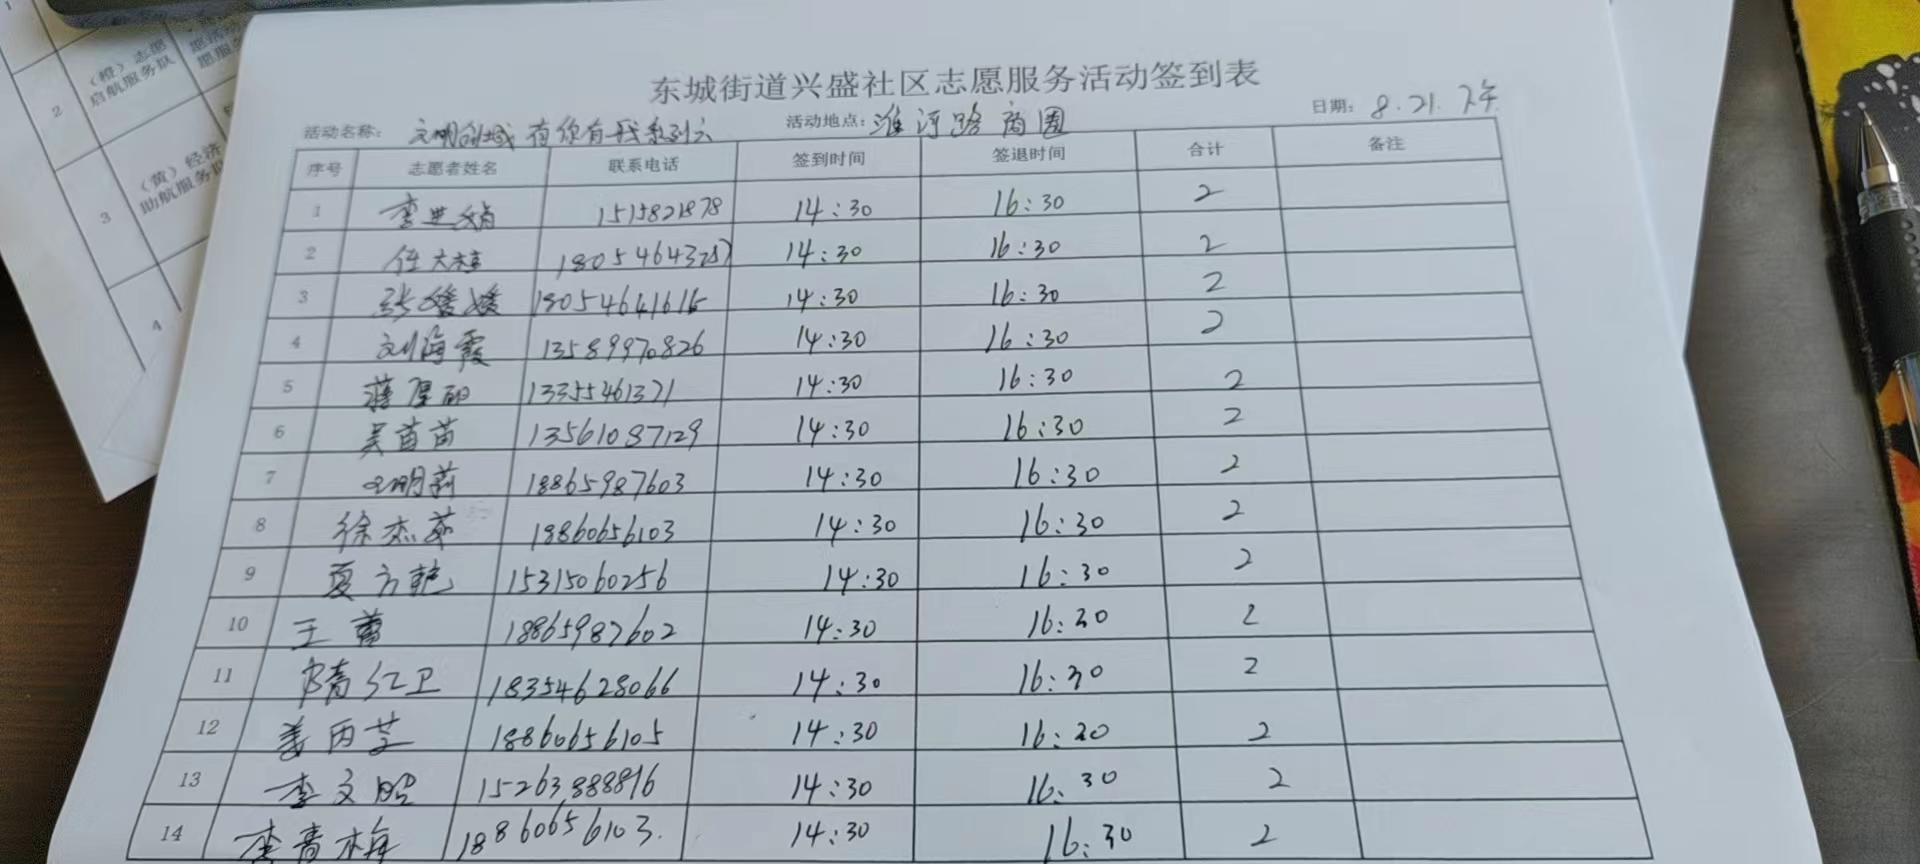 东城街道兴盛社区志愿服务活动签到表
活动名称: 文明创城 有你有我系列六 活动地点: 淮河路商圈 日期: 8.21.下午
序号 志愿者姓名 联系电话 签到时间 签退时间 合计 备注
1 李 1515821878 14:30 16:30 2
2 任大 14:30 16:30 2
3 张媛媛 18054641616 14:30 16:30 2
4 刘海霞 13589970826 14:30 16:30 2
5 蒋厚丽 1335461321 14:30 16:30 2
6 吴苗苗 13561087129 14:30 16:30 2
7 明莉 18865987603 14:30 16:30 2
8 徐杰茹 18860656103 14:30 16:30 2
9 夏方乾 15315060256 14:30 16:30 2
10 王 18865987602 14:30 16:30 2
11 隋红卫 18354628066 14:30 16:30 2
12 姜丙芝 18860656105 14:30 16:30 2
13 李文昭 15263888816 14:30 16:30 2
14 李青梅 18860656103. 14:30 16:30 2
2 (橙)志愿
启航服务队
3 (黄)经济
助航服务队
4